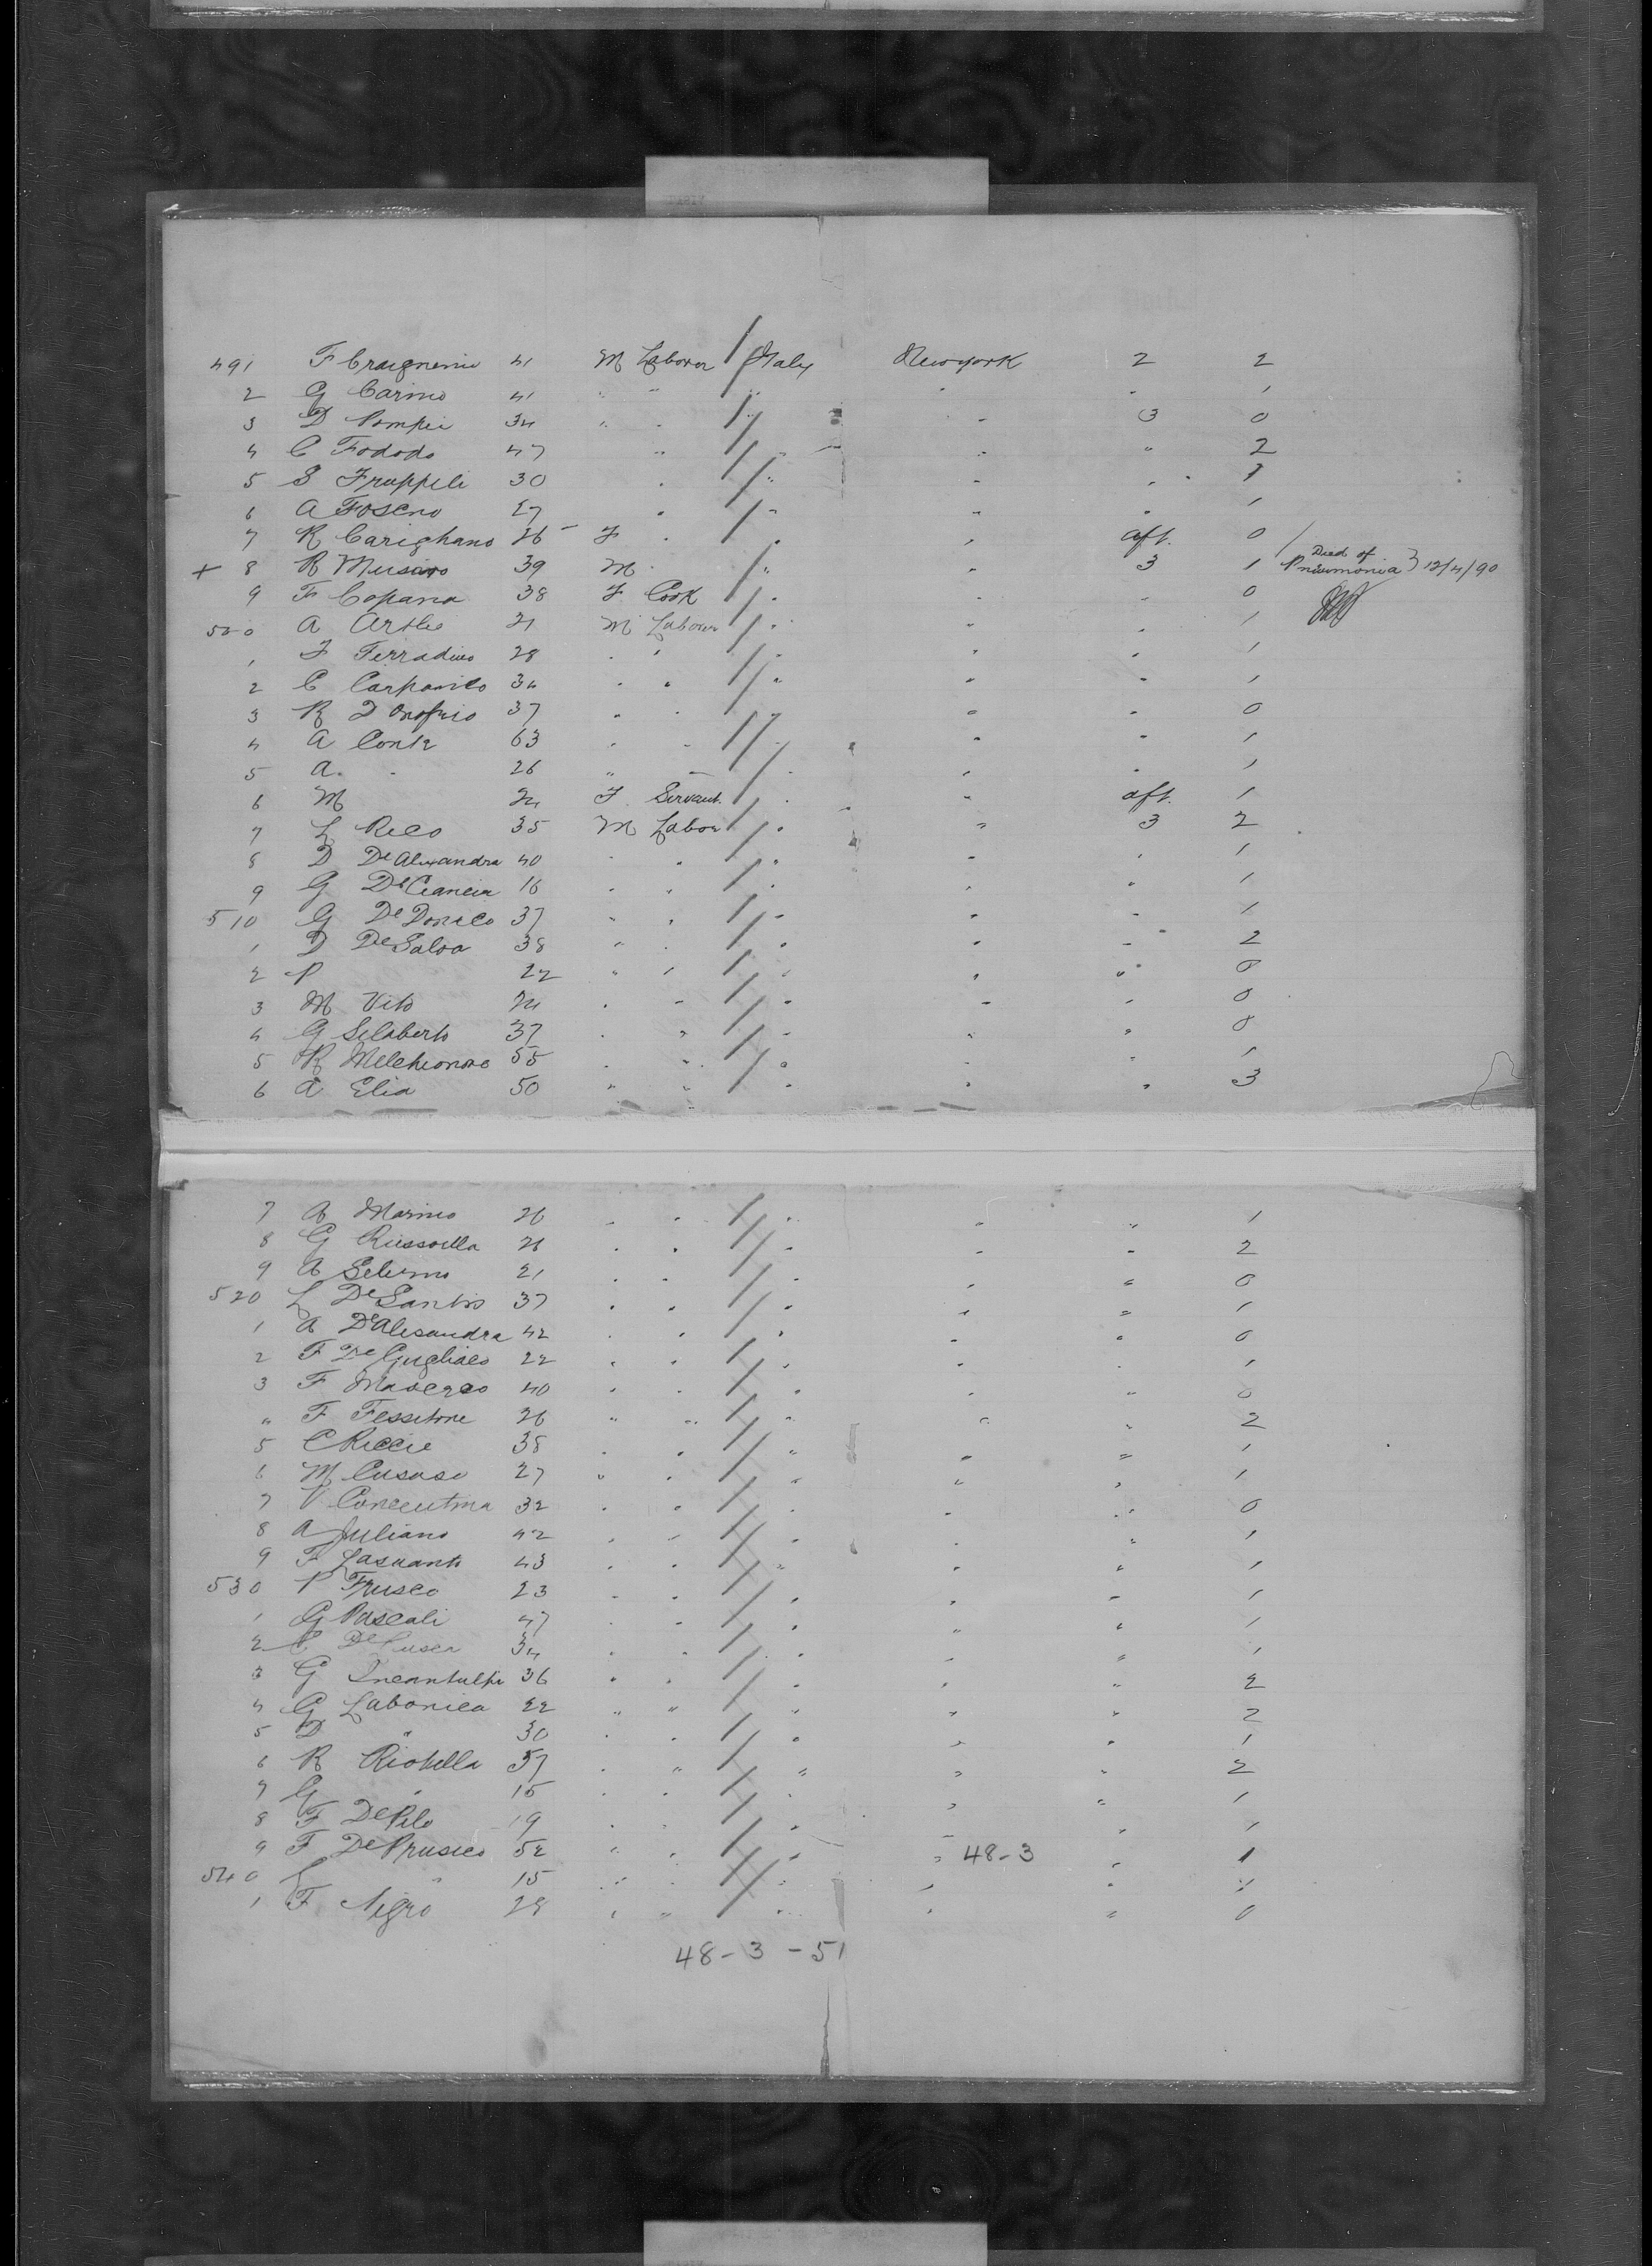 491 F Craignenie 41 M Laborer Italy New york 2 2
2 G Carino 41 " " " " " 1
3 D Pompei 34 " " " " 3 0
4 C Fododo 47 " " " " 2
5 S Fruppili 30 " " " " 1
6 A Foseno 27 " " " " 1
7 R Carighano 26 F " " " aft. 0
+ 8 R Musaro 39 M " " " 3 1 Died of Pneumonia } 12/4/90
9 F Copana 38 F Cook " " " 0
500 A Artle 21 M Laborer " " " 1
1 F Ferradino 28 " " " " " 1
2 C Carpanito 34 " " " " " 1
3 R D Onofrio 37 " " " " " 0
4 A Conte 63 " " " " " 1
5 A. " 26 " " " " " 1
6 M 24 F Servant " " aft. 1
7 L Rico 35 M Labor " " 3 2
8 D De Alixandra 40 " " " " " 1
9 G De Ciancia 16 " " " " " 1
510 G De Donico 37 " " " " " 1
1 D De Salva 38 " " " " " 2
2 P 22 " " " " " 0
3 M Vito 24 " " " " " 0
4 G Silaberto 37 " " " " " 0
5 R Melchionore 55 " " " " " 1
6 A Elia 50 " " " " " 3
7 A Marino 26 " " " " " 1
8 G Russoulla 26 " " " " " 2
9 A Selerno 21 " " " " " 0
520 L De Santis 37 " " " " " 1
1 A De Alesandra 42 " " " " " 0
2 F De Gugliaeo 22 " " " " " 1
3 F 40 " " " " " 0
" F Fessitore 26 " " " " " 2
5 C Riccie 38 " " " " " 1
6 M Casaso 27 " " " " " 1
7 V Concentina 32 " " " " " 0
8 A Juliano 42 " " " " " 1
9 F Lasuanto 43 " " " " " 1
530 P Frusco 23 " " " " " 1
1 G Pascali 47 " " " " " 1
2 C De Cusca 34 " " " " " 1
3 G 36 " " " " " 2
4 G Labonica 22 " " " " " 2
5 D " 30 " " " " " 1
6 R Riotella 57 " " " " " 2
7 G " 15 " " " " " 1
8 F De Pilo 19 " " " " " 1
9 F De Prusico 52 " " " " 48-3 " 1
540 L " 15 " " " " " 1
1 F Nigro 28 " " " " " 0
48-3-51